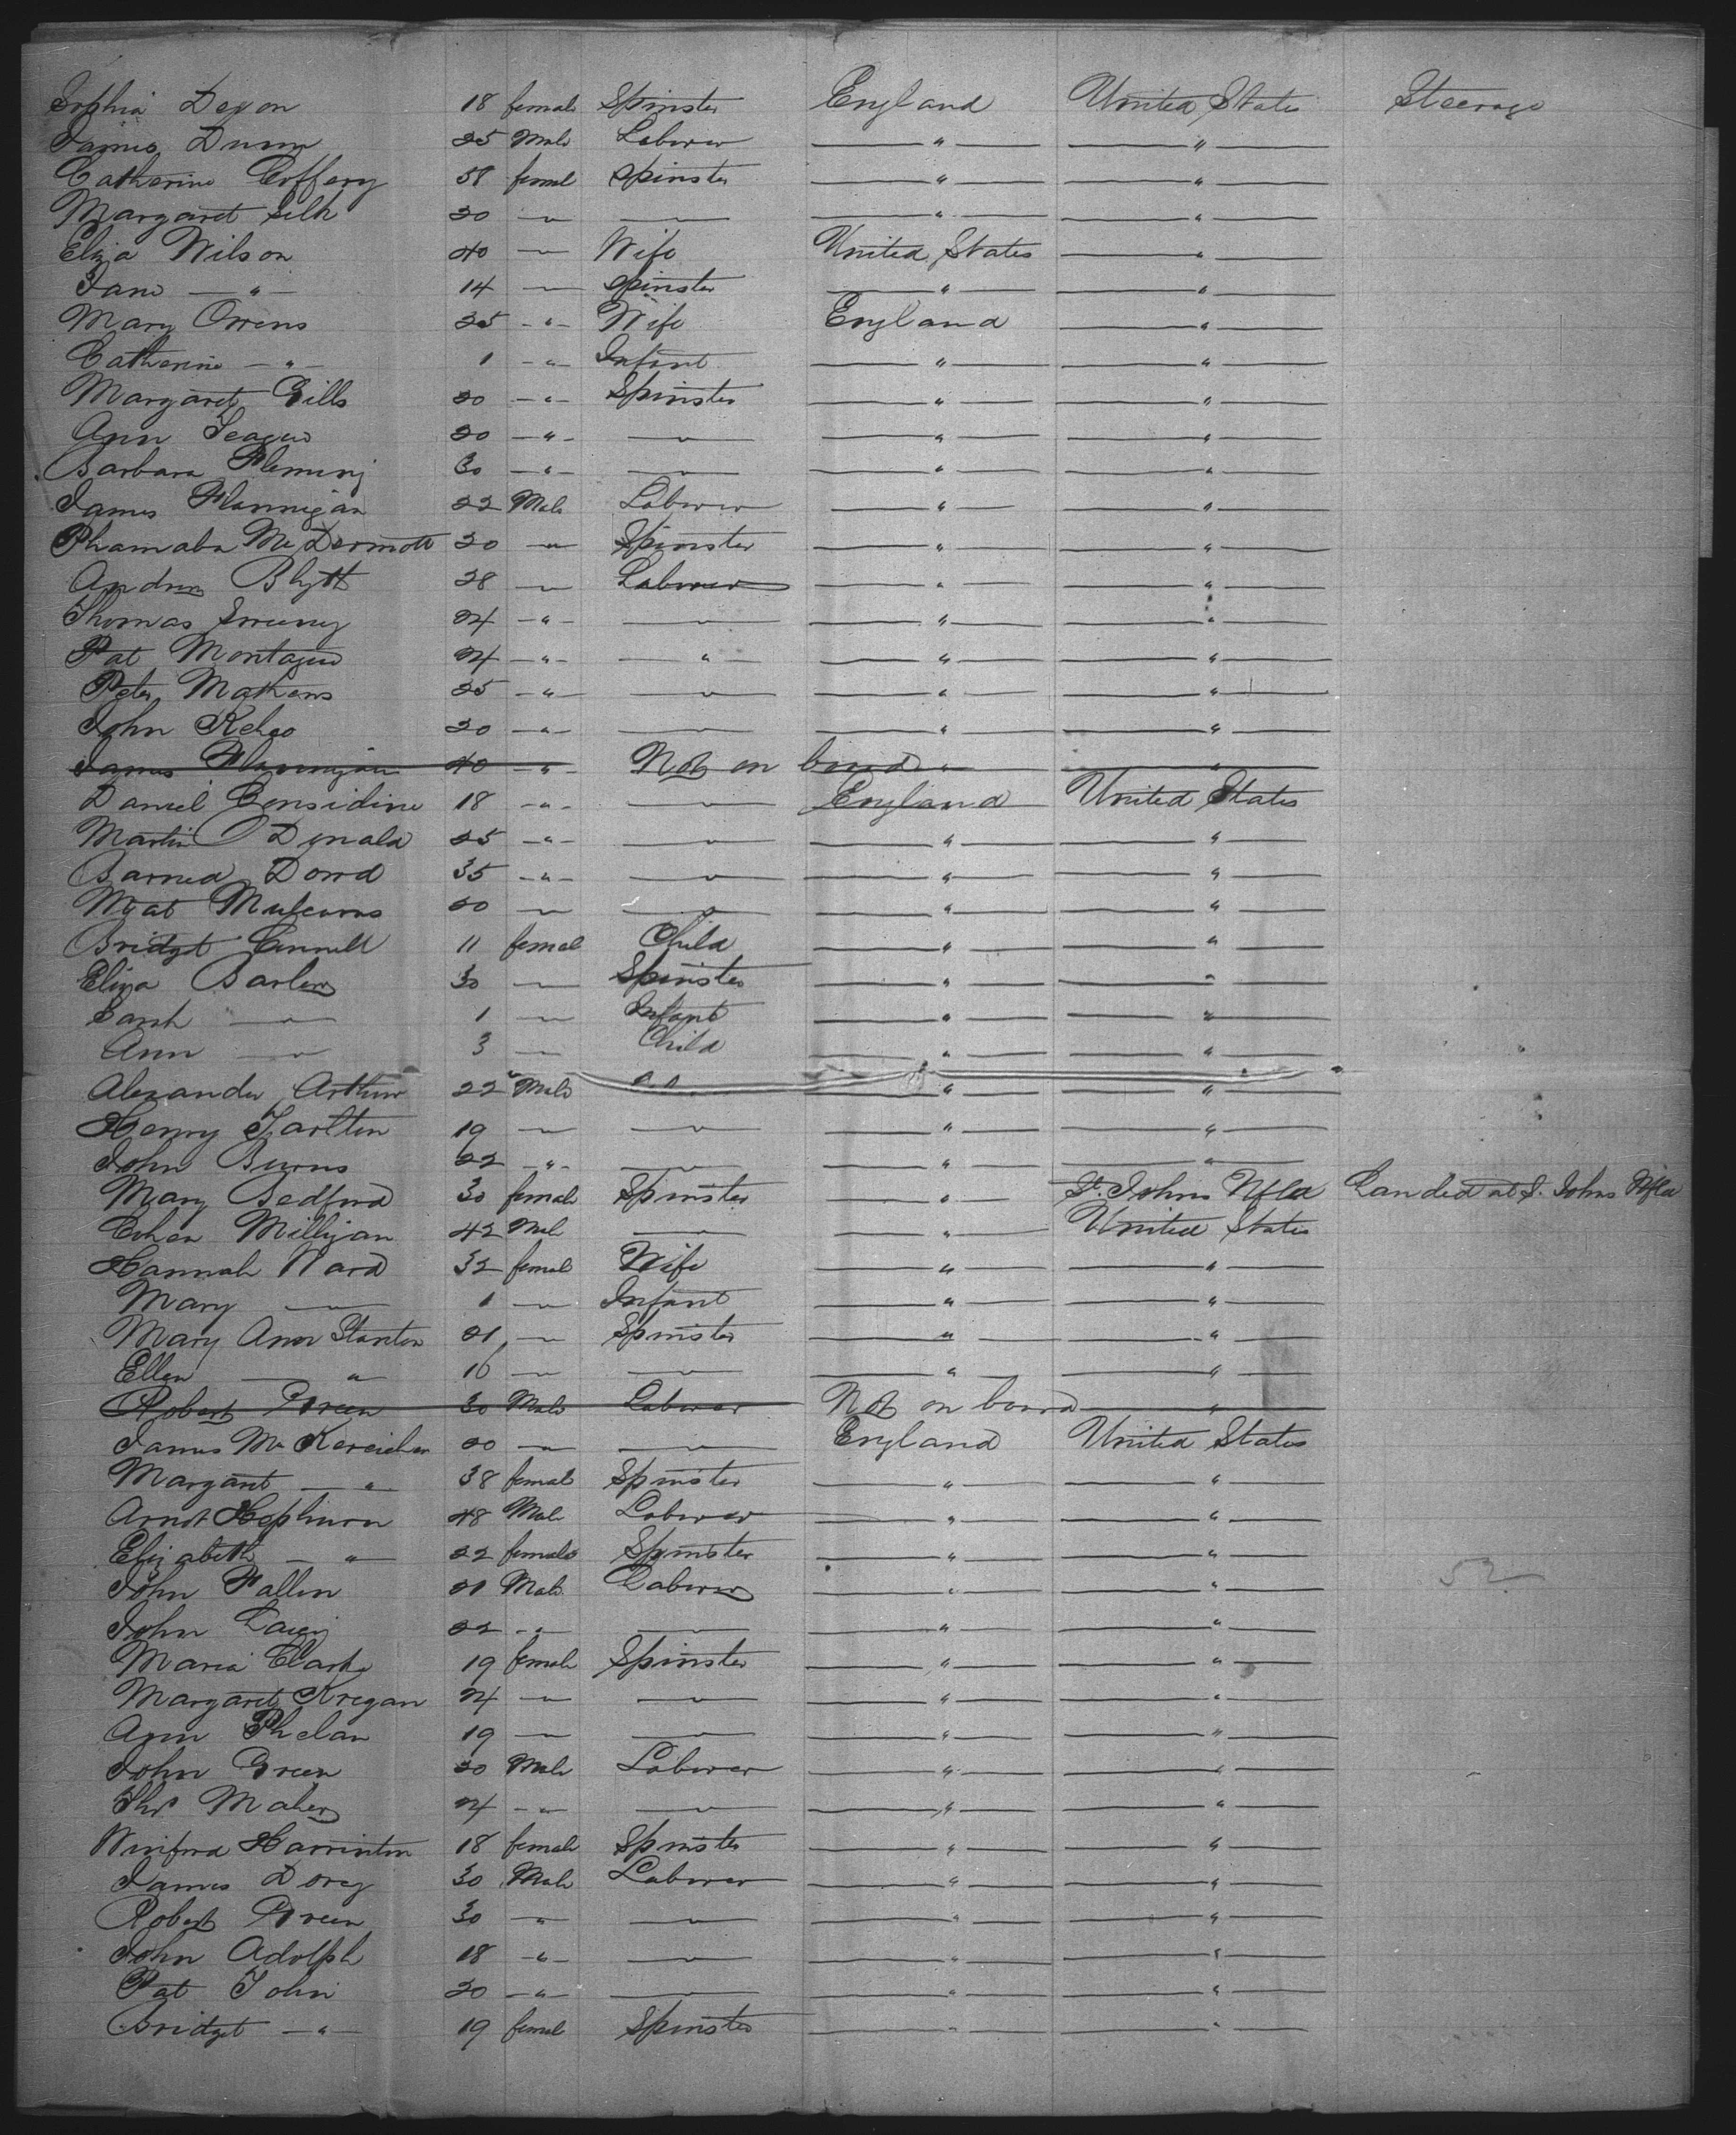 Sophia Dexon 18 female Spinster England United States Steerage
James Dunn 25 Male Laborer — " — — " —
Catherine Coffery 58 femal Spinster — " — — " —
Margaret Silk 20 — " — — " — — " — — " —
Eliza Wilson 40 — " — Wife United States — " —
Jane — " — 14 — " — Spinster — " — — " —
Mary Owens 25 — " — Wife England — " —
Catherine — " — 1 — " — Infant — " — — " —
Margaret Gills 20 — " — Spinster — " — — " —
Ann Teague 20 — " — — " — — " — — " —
Barbara Fleming 30 — " — — " — — " — — " —
James Flannigan 22 Male Laborer — " — — " —
McDermott 20 — " — Spinster — " — — " —
Andrew Blyth 28 — " — Laborer — " — — " —
Thomas Sweeny 24 — " — — " — — " — — " —
Pat Montague 24 — " — — " — — " — — " —
Peter Mathews 25 — " — — " — — " — — " —
John Kehoo 20 — " — — " — — " — — " —
James Flannigan 40 — " — Not on board " — " —
Daniel Considine 18 — " — — " — England United States
Martin O Donald 25 — " — — " — — " — — " —
Barned Dowd 35 — " — — " — — " — — " —
20 — " — — " — — " — — " —
Bridget Connell 11 femal Child — " — — " —
Eliza Barlow 30 — " — Spinster — " — — " —
Sarah — " — 1 — " — Infant — " — — " —
Ann — " — 3 — " — Child — " — — " —
Alexander Arthur 22 Male — " — — " —
Henry Tarlton 19 — " — — " — — " — — " —
John Burns 22 — " — — " — — " — — " —
Mary Bedford 30 female Spinster — " — St. Johns Nfld Landed at S. Johns Nfld
Milligan 42 Male — " — — " — United States
Hannah Ward 32 female Wife — " — — " —
Mary — " — 1 — " — Infant — " — — " —
Mary Ann Stanton 21 — " — Spinster — " — — " —
Ellen — " — 16 — " — — " — — " — — " —
Robert Green 30 Male Laborer Not on board — " —
James 20 — " — — " — England United States
Margaret — " — 38 female Spinster — " — — " —
Hephurn 48 Male Laborer — " — — " —
Elizabeth — " — 22 female Spinster — " — — " —
John Fallen 21 Male Laborer — " — — " — 52
John 22 — " — — " — — " — — " —
Maria Clarke 19 female Spinster — " — — " —
Margaret Kregan 24 — " — — " — — " — — " —
Ann Phelan 19 — " — — " — — " — — " —
John Green 20 Male Laborer — " — — " —
Thos Maher 24 — " — — " — — " — — " —
Winifred Harrinton 18 female Spinster — " — — " —
James Dorey 30 Male Laborer — " — — " —
Robert Green 30 — " — — " — — " — — " —
John Adolph 18 — " — — " — — " — — " —
Pat John 20 — " — — " — — " — — " —
Bridget — " — 19 femal Spinster — " — — " —